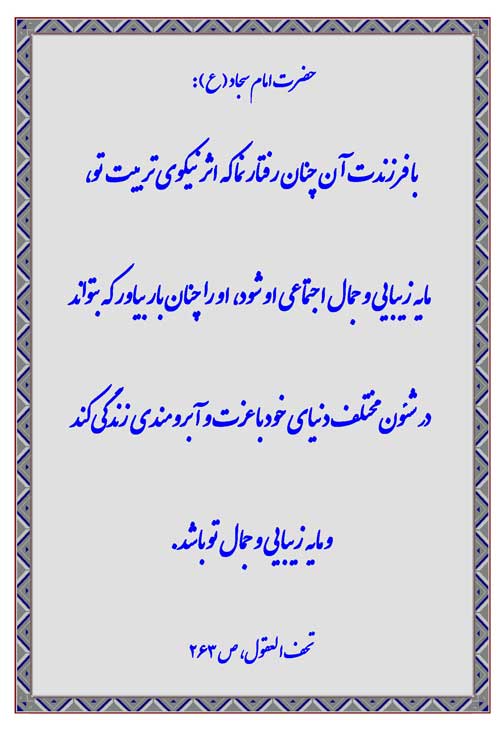 حضرت امام سجاد (ع):
با فرزندت آن چنان رفتار نما که اثر نیکوی تربیت تو،
مایه زیبایی و جمال اجتماعی او شود، او را چنان بار بیاور که بتواند
در شئون مختلف دنیای خود با عزت و آبرومندی زندگی کند
و مایه زیبایی و جمال تو باشد.
تحف العقول، ص ۲۶۳